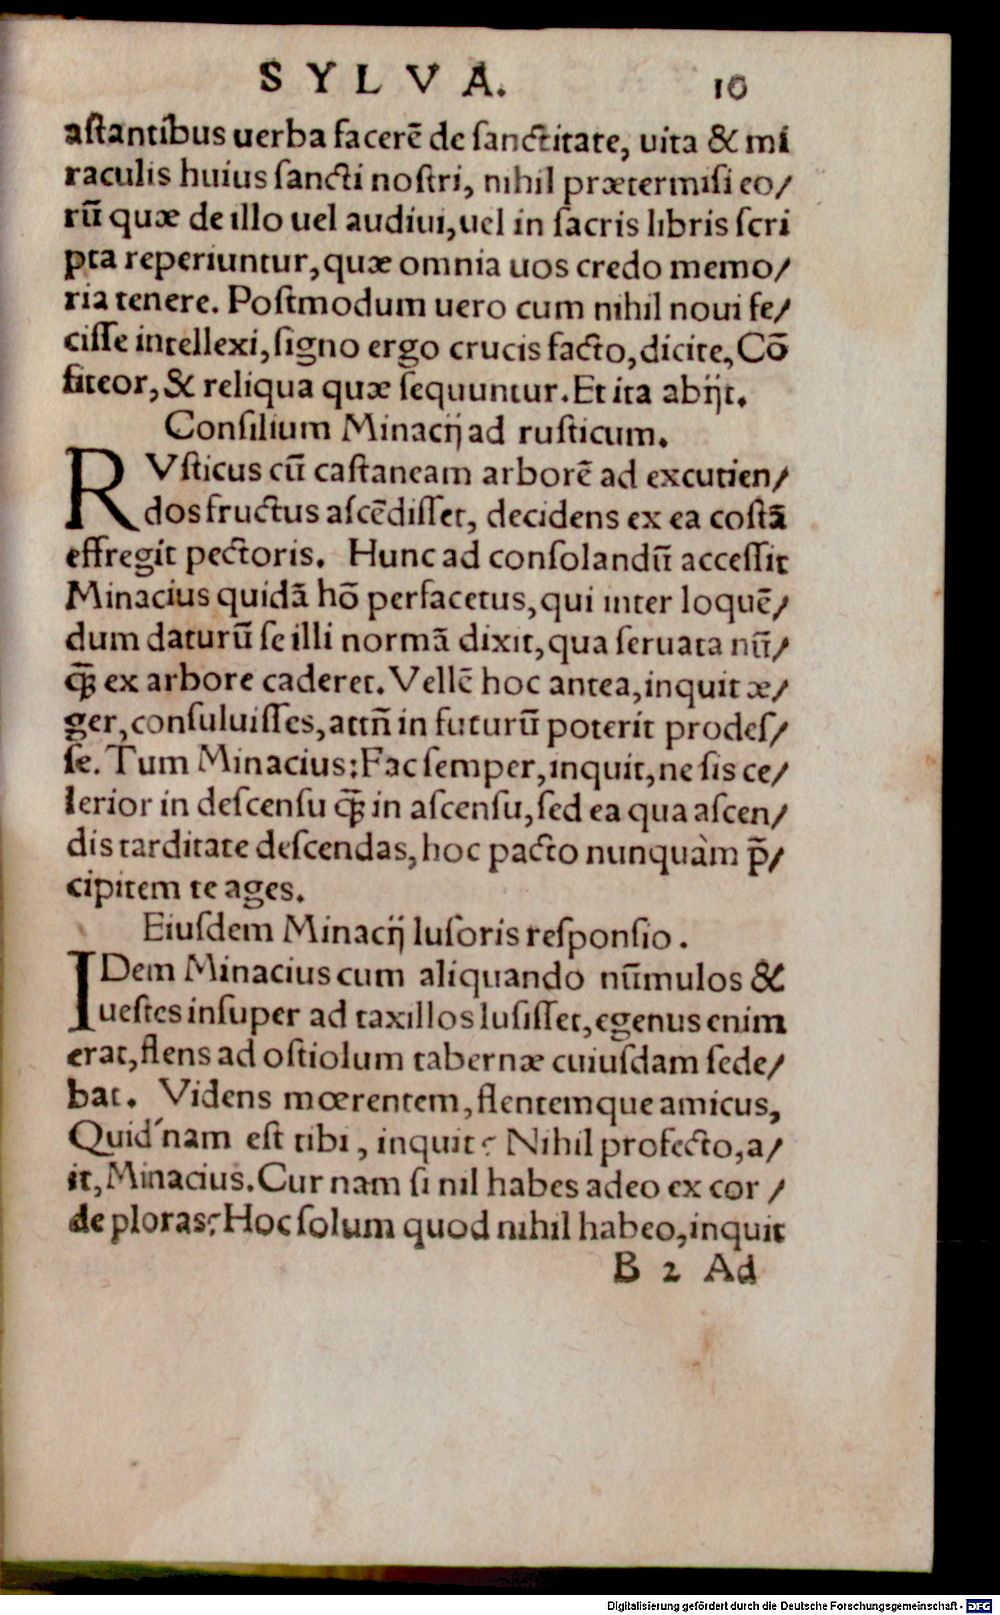 SYLVA. 10
aſtantibus uerba facerē de ſanctitate, uita & mi
raculis huius ſancti noſtri, nihil prætermiſi eo/
rū quæ de illo uel audiui, uel in ſacris libris ſcri
pta reperiuntur, quæ omnia uos credo memo/
ria tenere. Poſtmodum uero cum nihil noui fe/
ciſſe intellexi, ſigno ergo crucis facto, dicite, Cō
fiteor, & reliqua quæ ſequuntur. Et ita abijt.
Conſilium Minacij ad ruſticum.
RVſticus cū caſtaneam arborē ad excutien/
dos fructus aſcēdiſſet, decidens ex ea coſtā
effregit pectoris. Hunc ad conſolandū acceſſit
Minacius quidā hō perfacetus, qui inter loquē/
dum daturū ſe illi normā dixit, qua ſeruata nū/
ꝙ̃ ex arbore caderet. Vellē hoc antea, inquit æ/
ger, conſuluiſſes, attñ in futurū poterit prodeſ/
ſe. Tum Minacius: Fac ſemper, inquit, ne ſis ce/
lerior in deſcenſu ꝙ̃ in aſcenſu, ſed ea qua aſcen/
dis tarditate deſcendas, hoc pacto nunquàm p̄/
cipitem te ages.
Eiuſdem Minacij luſoris reſponſio.
IDem Minacius cum aliquando nūmulos &
ueſtes inſuper ad taxillos luſiſſet, egenus enim
erat, flens ad oſtiolum tabernæ cuiuſdam ſede/
bat. Videns mœrentem, flentemque amicus,
Quid´nam eſt tibi, inquit? Nihil profecto, a/
it, Minacius. Cur nam ſi nil habes adeo ex cor/
de ploras? Hoc ſolum quod nihil habeo, inquit
B 2 Ad
Digitalisierung gefördert durch die Deutsche Forschungsgemeinschaft - DFG